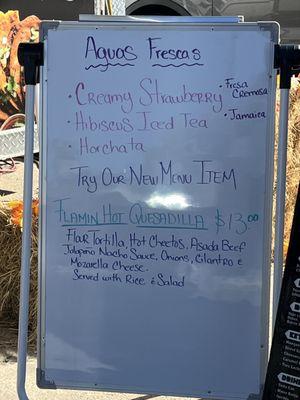 Aguas Frescas
• Creamy Strawberry
• Fresa Cremosa
• Hibiscus Iced Tea
• Jamaica
• Horchata
Try Our New Menu Item
Flamin Hot Quesadilla $13.00
Flour Tortilla, Hot Cheetos, Asada Beef
Jalapeno Nacho Sauce, Onions, Cilantro &
Mozarella Cheese.
Served with Rice & Salad